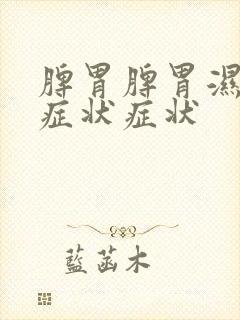 脾胃脾胃濕
症状症状
藍菡木